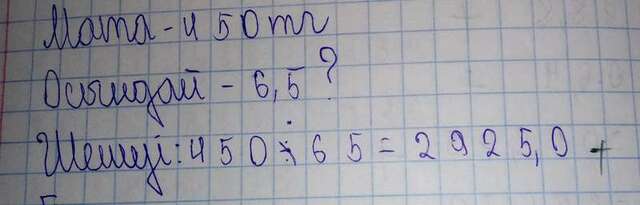 Мата - 450тг
Осындай - 6,5?
Шешуі: 450 · 65 = 2925,0 +